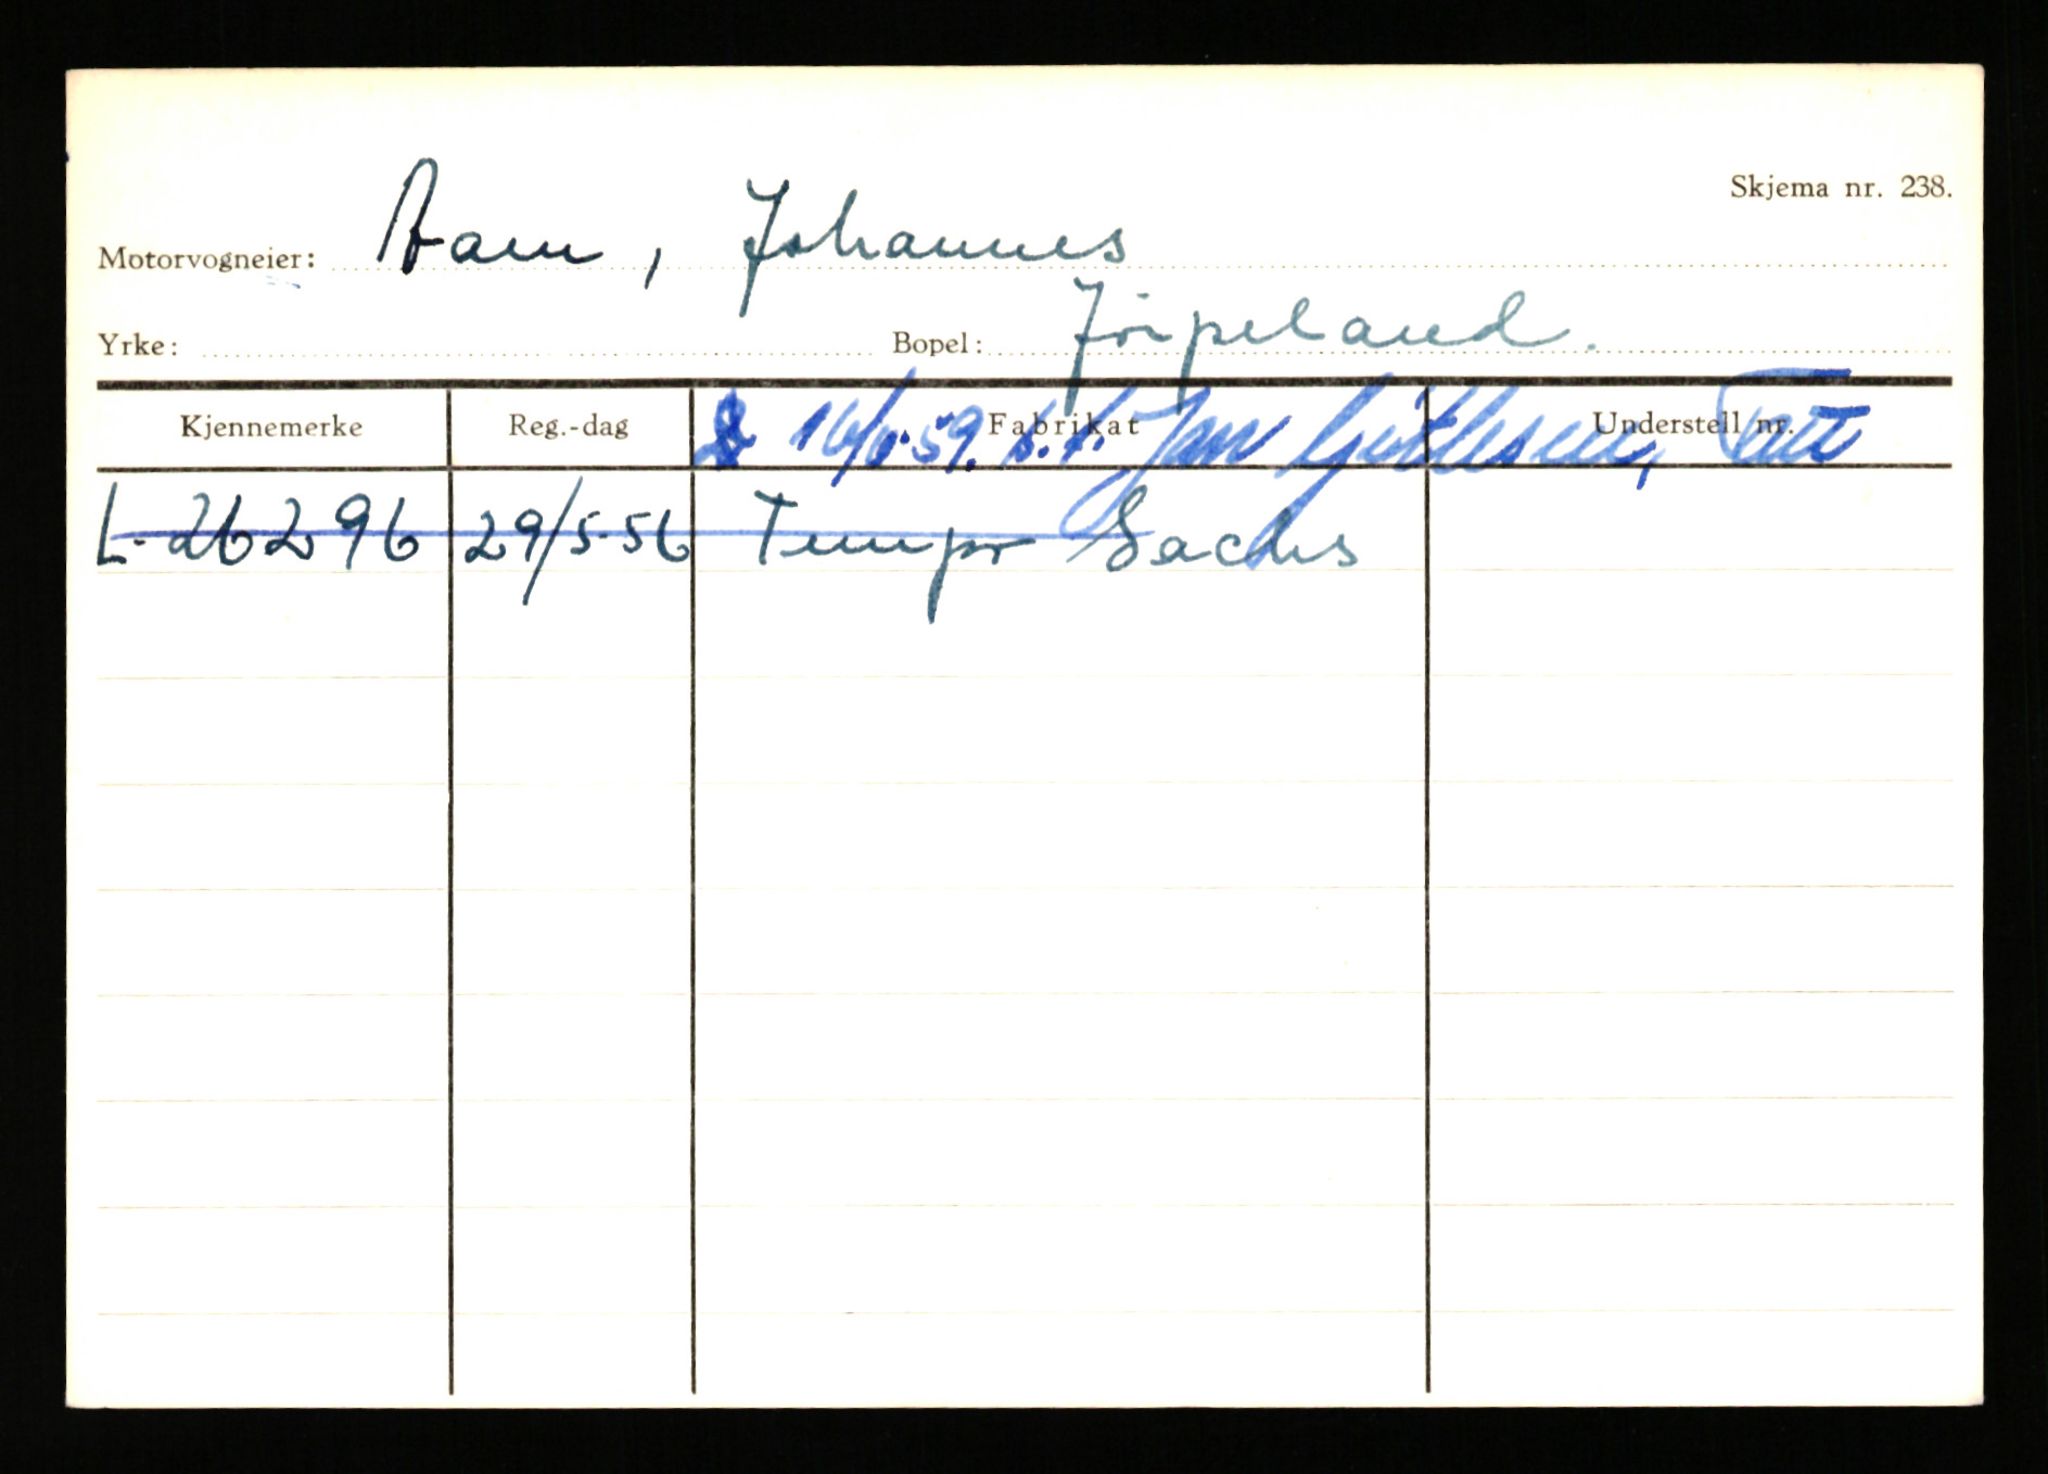 Skjema nr. 238.
Motorvogneier: Aam, Johannes
Yrke: Bopel: Jørpeland.
Kjennemerke Reg.-dag Fabrikat Understell nr.
59. s. t. Jan Tau
L-26296 29/5-56 Tempo Sachs